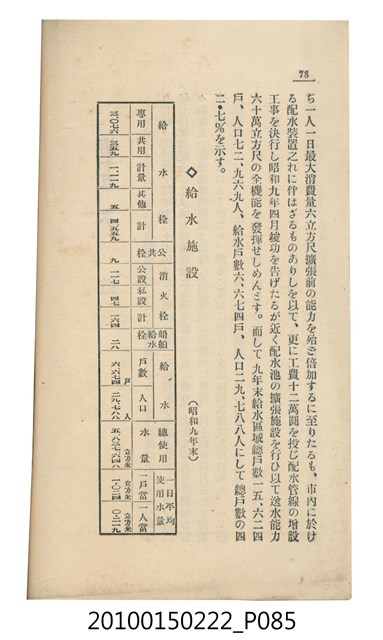 78
ち一人一日最大消費量六立方尺擴張前の能力を殆ど倍加するに至りたるも、市内に於け
る配水裝置之れに伴はざるものありしを以て、更に工費十二萬圓を投じ配水管線の增設
工事を決行し昭和九年四月竣功を告げたるが近く配水池の擴張施設を行ひ以て送水能力
六十萬立方尺の全機能を發揮せしめんとす。而して九年末給水區域總戶數一五、六二四
戶、人口七二、九六九人、給水戶數六、六七四戶、人口二九、七八八人にして總戶數の四
二・七%を示す。
◇給水施設
(昭和九年末)
給水栓
專用 共用 計量 其他 計
公共栓
消火栓
公設 私設 計
船舶給水栓
給水
戶數 人口
總使用水量
一日平均使用水量
一戶當 一人當
三、〇七六 三五九 一、一一九 五 四、五五九 九 一一七 四七 一六四 二八
戶 六、六七四
人 二九、七八八
立方米
立方米 一、〇三四
立方米 〇、二一九
20100150222_P085